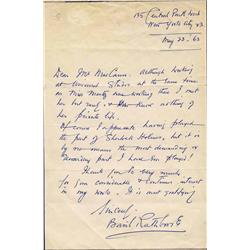 135 Central Park West
New York City 23
May 23 - 63
Dear Mr MacCann. Although working
at Universal Studios at the same time
as Miss Montez was working there I met
her but rarely & knew nothing of
her private life.
Of course I appreciate having played
the part of Sherlock Holmes, but it is by
no means the most demanding or
rewarding part I have ever played!
Thank you so very much
for your considerate & continued interest
in my work. It is most gratifying
Sincerely
Basil Rathbone